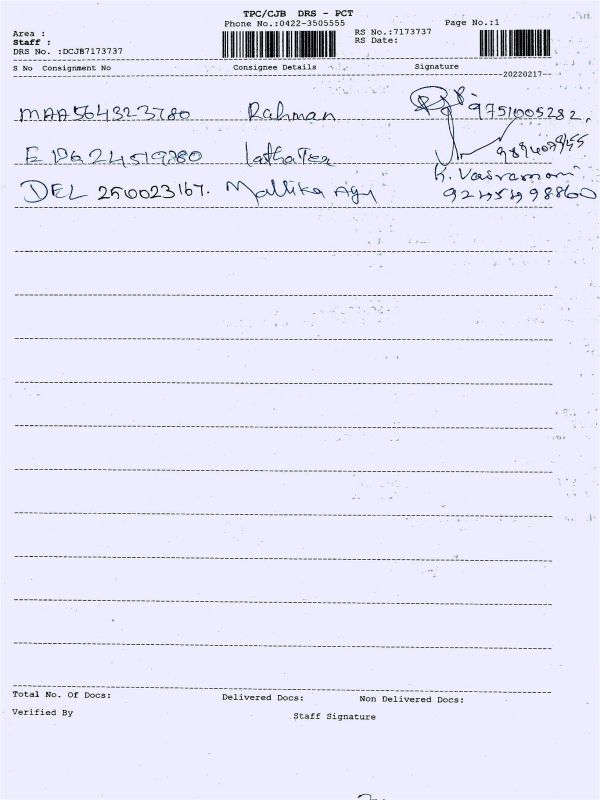 TPC/CJB DRS - PCT
Phone No.:0422-3505555
Page No.:1
Area :
RS No.:7173737
Staff :
RS Date:
DRS No. :DCJB7173737
S No Consignment No Consignee Details Signature
20220217
MAA564323780 Rahman 9751005282,
EDG24519280
DEL 250023167. Mallika Agy K. Vasramani
Total No. Of Docs: Delivered Docs: Non Delivered Docs:
Verified By Staff Signature